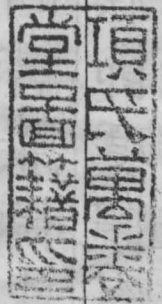 項氏萬卷
堂圖籍印